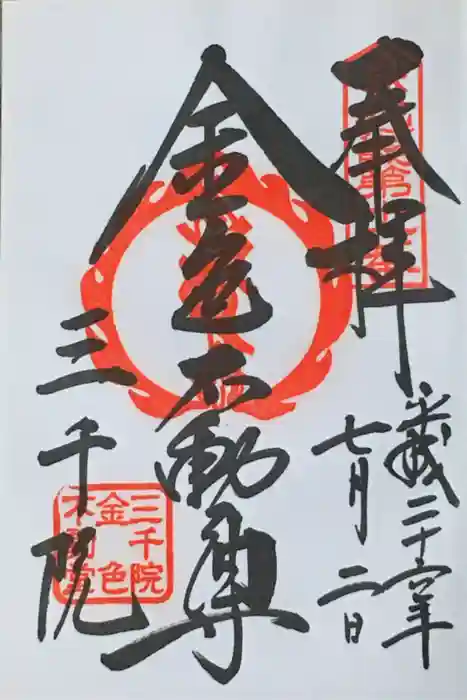 奉拝
平成二十六年
七月二日
金色不動尊
三千院
三千院
金色
不動堂